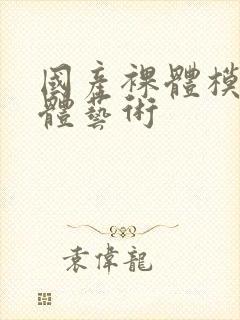 國產裸體模
體藝術
袁偉龍